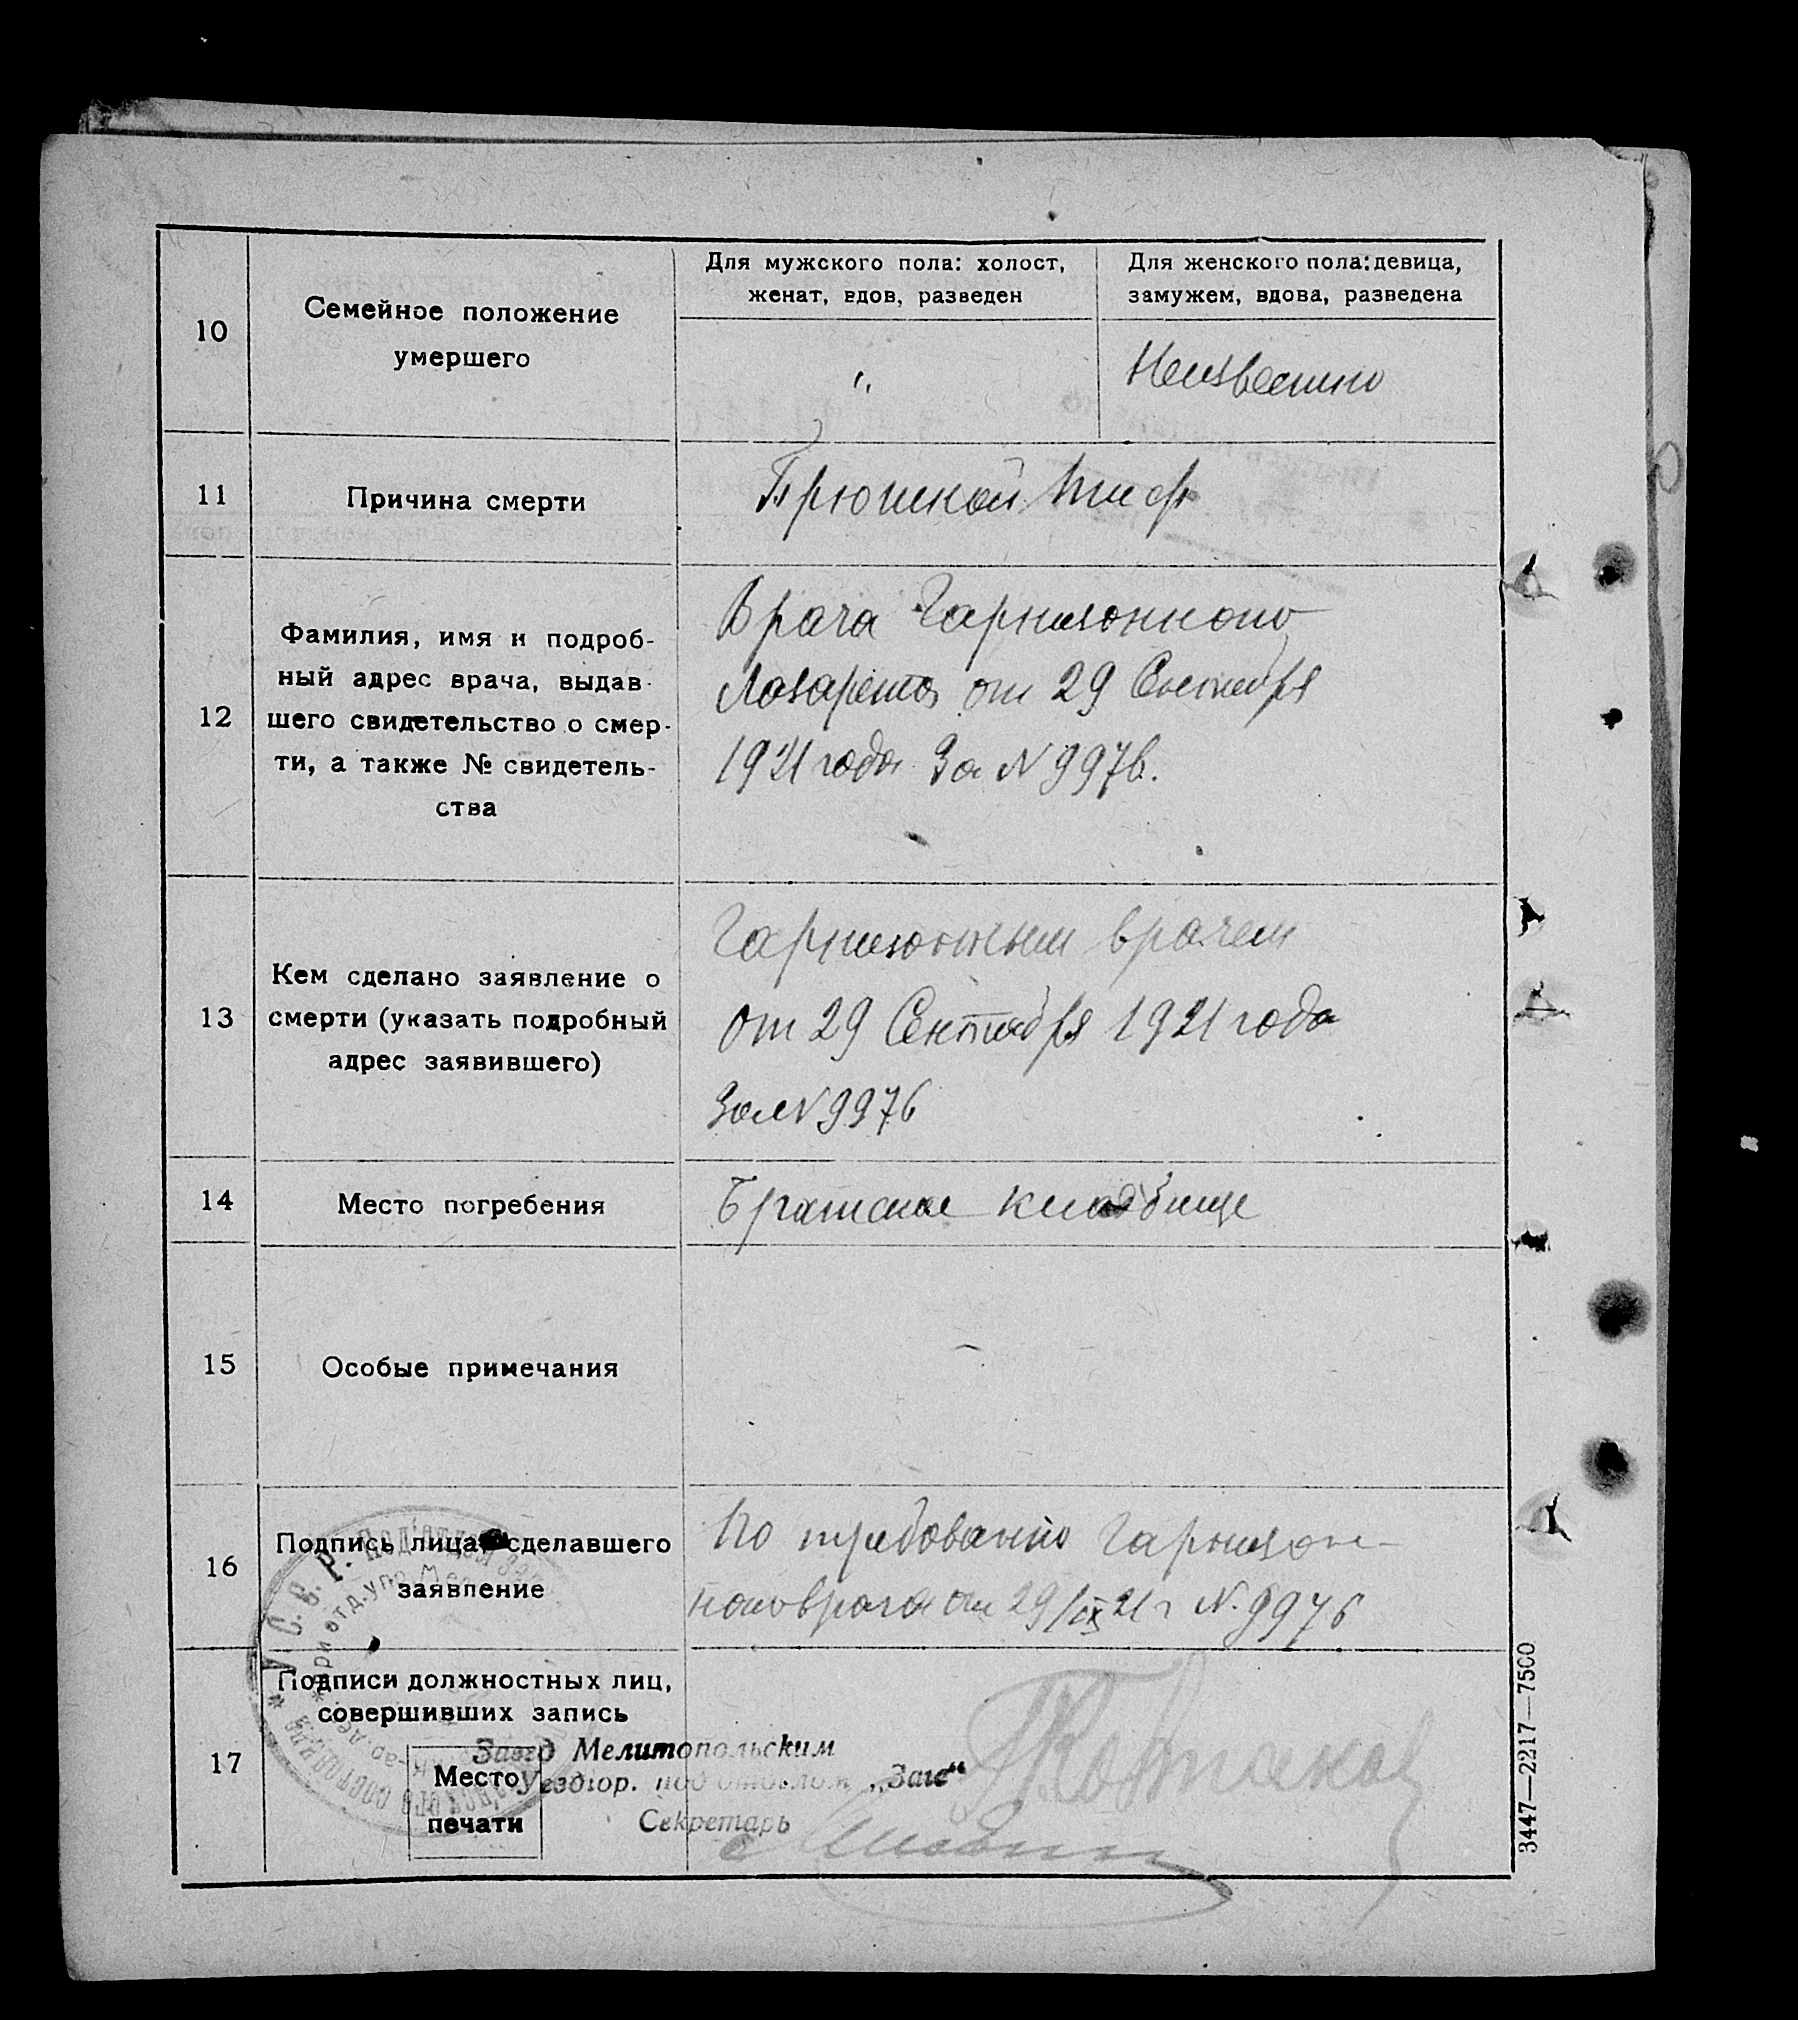 10
Семейное положение
умершего
Для мужского пола: холост,
женат, вдов, разведен
Для женского пола: девица,
замужем, вдова, разведена
"
Неизвестно
11
Причина смерти
Брюшной тиф
12
Фамилия, имя и подроб-
ный адрес врача, выдав-
шего свидетельство о смер-
ти, а также № свидетель-
ства
Врача Гарнизонного
Лазарета от 29 Сентября
1921 года За № 9976.
13
Кем сделано заявление о
смерти (указать подробный
адрес заявившего)
Гарнизонным врачем
от 29 Сентября 1921 года
За № 9976
14
Место погребения
Братское кладбище
15
Особые примечания
16
Подпись лица сделавшего
заявление
По требованию Гарнизон-
ного врача от 29/IX 21 г N. 9976
17
Подписи должностных лиц,
совершивших запись
Завед Мелитопольским
Уездгор. под'отделом „Загс"
Секретарь
Место
печати
У. С. С. Р.
3447—2217—7500